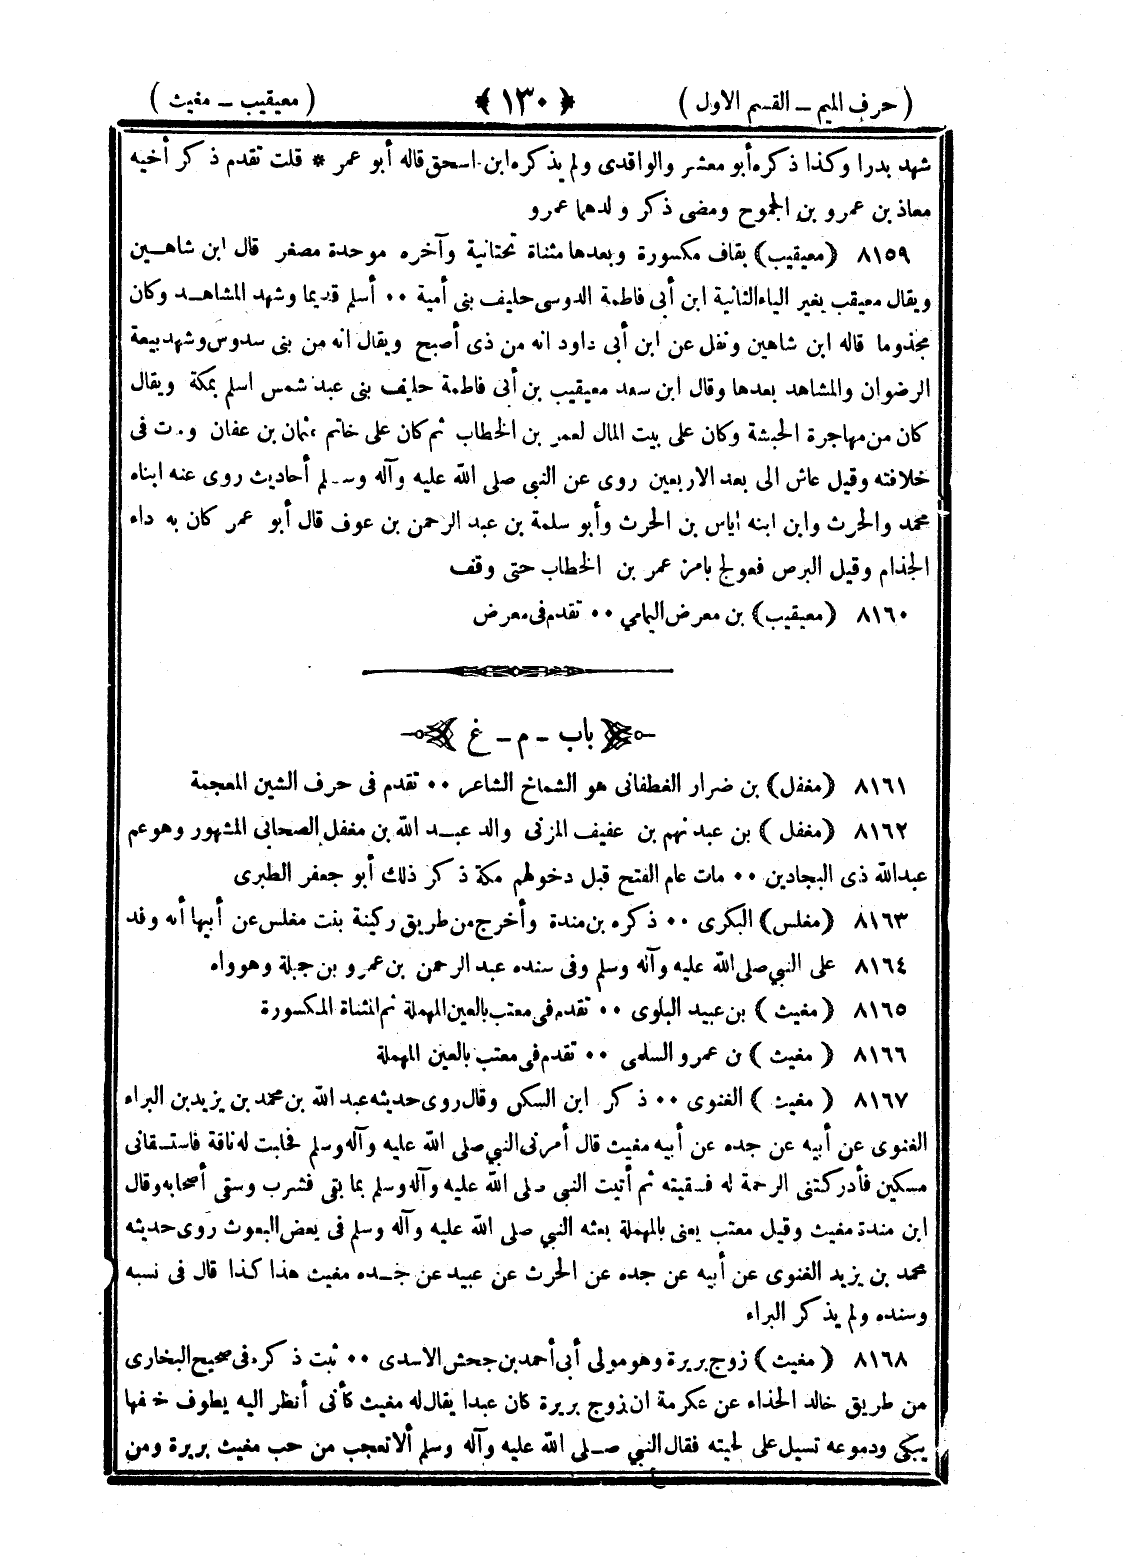 ( حرف الميم ــ القسم الاول ) ﴿ ١٣٠ ﴾ ( معيقيب ــ مغيث )
شهد بدرا وكذا ذكره أبو معشر والواقدى ولم يذكره ابن اسحق قاله أبو عمر * قلت تقدم ذكر أخيه
معاذ بن عمرو بن الجموح ومضى ذكر ولدهما عمرو
٨١٥٩ ( معيقيب ) بقاف مكسورة وبعدها مثناة تحتانية وآخره موحدة مصغر قال ابن شاهين
ويقال معيقب بغير الياء الثانية ابن أبي فاطمة الدوسى حليف بنى أمية ٠٠ أسلم قديما وشهد المشاهد وكان
مجذوما قاله ابن شاهين ونقل عن ابن أبى داود انه من ذى أصبح ويقال انه من بنى سدوس وشهد بيعة
الرضوان والمشاهد بعدها وقال ابن سعد معيقيب بن أبى فاطمة حليف بنى عبد شمس اسلم بمكة ويقال
كان من مهاجرة الحبشة وكان على بيت المال لعمر بن الخطاب ثم كان على خاتم عثمان بن عفان ومات فى
خلافته وقيل عاش الى بعد الاربعين روى عن النبى صلى الله عليه وآله وسلم أحاديث روى عنه ابناه
محمد والحرث وابن ابنه اياس بن الحرث وأبو سلمة بن عبد الرحمن بن عوف قال أبو عمر كان به داء
الجذام وقيل البرص فعولج بامر عمر بن الخطاب حتى وقف
٨١٦٠ ( معيقيب ) بن معرض اليمامي ٠٠ تقدم فى معرض
باب ــ م ــ غ
٨١٦١ ( مغفل ) بن ضرار الغطفانى هو الشماخ الشاعر ٠٠ تقدم فى حرف الشين المعجمة
٨١٦٢ ( مغفل ) بن عبد نهم بن عفيف المزنى والد عبد الله بن مغفل الصحابى المشهور وهو عم
عبد الله ذى البجادين ٠٠ مات عام الفتح قبل دخولهم مكة ذكر ذلك أبو جعفر الطبرى
٨١٦٣ ( مغلس ) البكرى ٠٠ ذكره بن مندة وأخرج من طريق ركينة بنت مغلس عن أبيها أنه وفد
٨١٦٤ على النبي صلى الله عليه وآله وسلم وفى سنده عبد الرحمن بن عمرو بن جبلة وهو واه
٨١٦٥ ( مغيث ) بن عبيد البلوى ٠٠ تقدم فى معتب بالعين المهملة ثم المثناة المكسورة
٨١٦٦ ( مغيث ) بن عمرو السلمى ٠٠ تقدم فى معتب بالعين المهملة
٨١٦٧ ( مغيث ) الغنوى ٠٠ ذكر ابن السكن وقال روى حديثه عبد الله بن محمد بن يزيد بن البراء
الغنوى عن أبيه عن جده عن أبيه مغيث قال أمرنى النبي صلى الله عليه وآله وسلم فحلبت له ناقة فاستسقانى
مسكين فأدركتنى الرحمة له فسقيته ثم أتيت النبي صلى الله عليه وآله وسلم بما بقى فشرب وسقى أصحابه وقال
ابن مندة مغيث وقيل معتب يعنى بالمهملة بعثه النبي صلى الله عليه وآله وسلم فى بعض البعوث روى حديثه
محمد بن يزيد الغنوى عن أبيه عن جده عن الحرث عن عبيد عن جده مغيث هذا كذا قال فى نسبه
وسنده ولم يذكر البراء
٨١٦٨ ( مغيث ) زوج بريرة وهو مولى أبى أحمد بن جحش الاسدى ٠٠ ثبت ذكره فى صحيح البخارى
من طريق خالد الحذاء عن عكرمة ان زوج بريرة كان عبدا يقال له مغيث كأنى أنظر اليه يطوف خلفها
يبكى ودموعه تسيل على لحيته فقال النبي صلى الله عليه وآله وسلم ألا تعجب من حب مغيث بريرة ومن